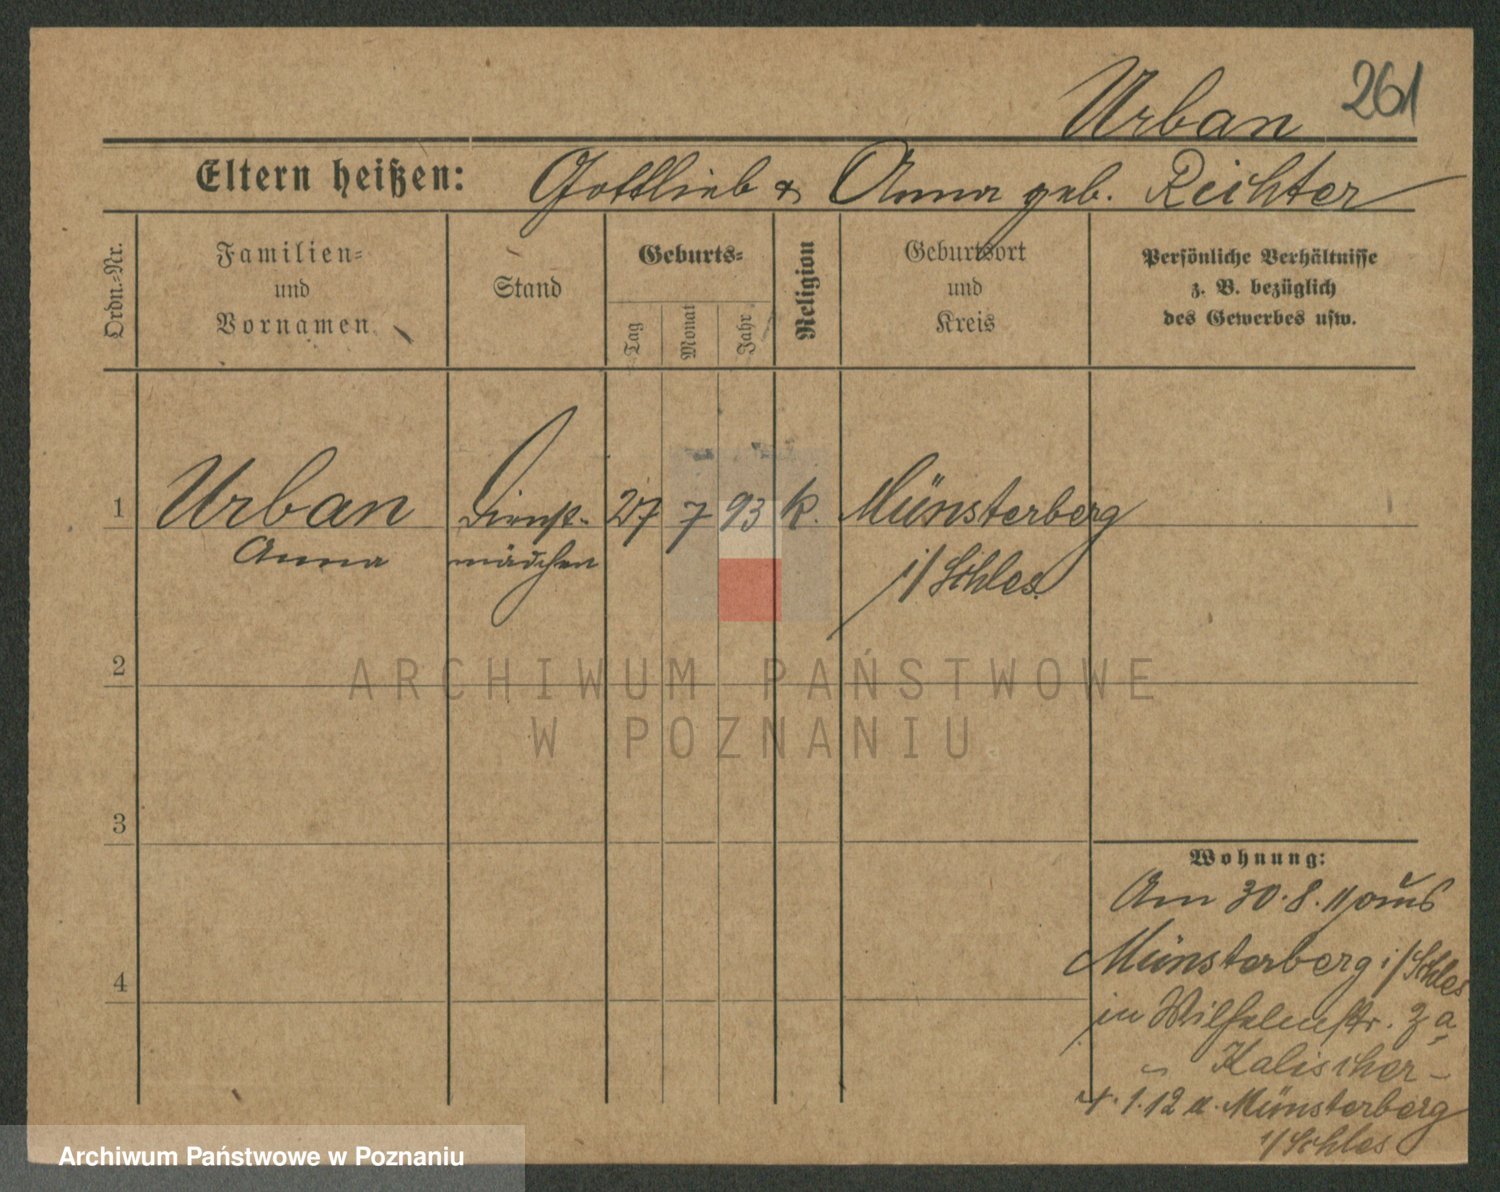 Urban 261
Eltern heißen: Gottlieb & Anna geb. Reichter
Ordn.-Nr.
Familien-
und
Vornamen.
Stand
Geburts-
Tag
Monat
Jahr
Religion
Geburtsort
und
Kreis
Persönliche Verhältnisse
z. B. bezüglich
des Gewerbes usw.
1 Urban Dienst- 27 7 93 k. Münsterberg
Anna mädchen i/Schles.
2
ARCHIWUM PAŃSTWOWE
W POZNANIU
3
Wohnung:
Am 30.8.11 aus
Münsterberg i/Schles
in Wilhelmstr. 3a
Kalischer
4
1.12 n. Münsterberg
i/Schles
Archiwum Państwowe w Poznaniu